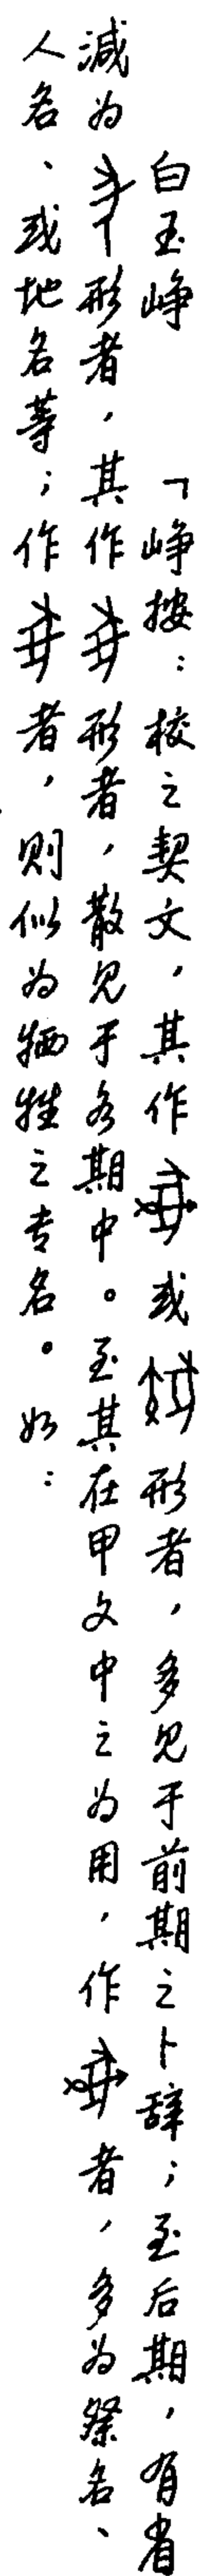 白玉峥 「峥按：校之契文，其作或形者，多见于前期之卜辞；至后期，有省
减为形者，其作形者，散见于各期中。至其在甲文中之为用，作者，多为祭名、
人名、或地名等；作者，则似为牺牲之专名。如：